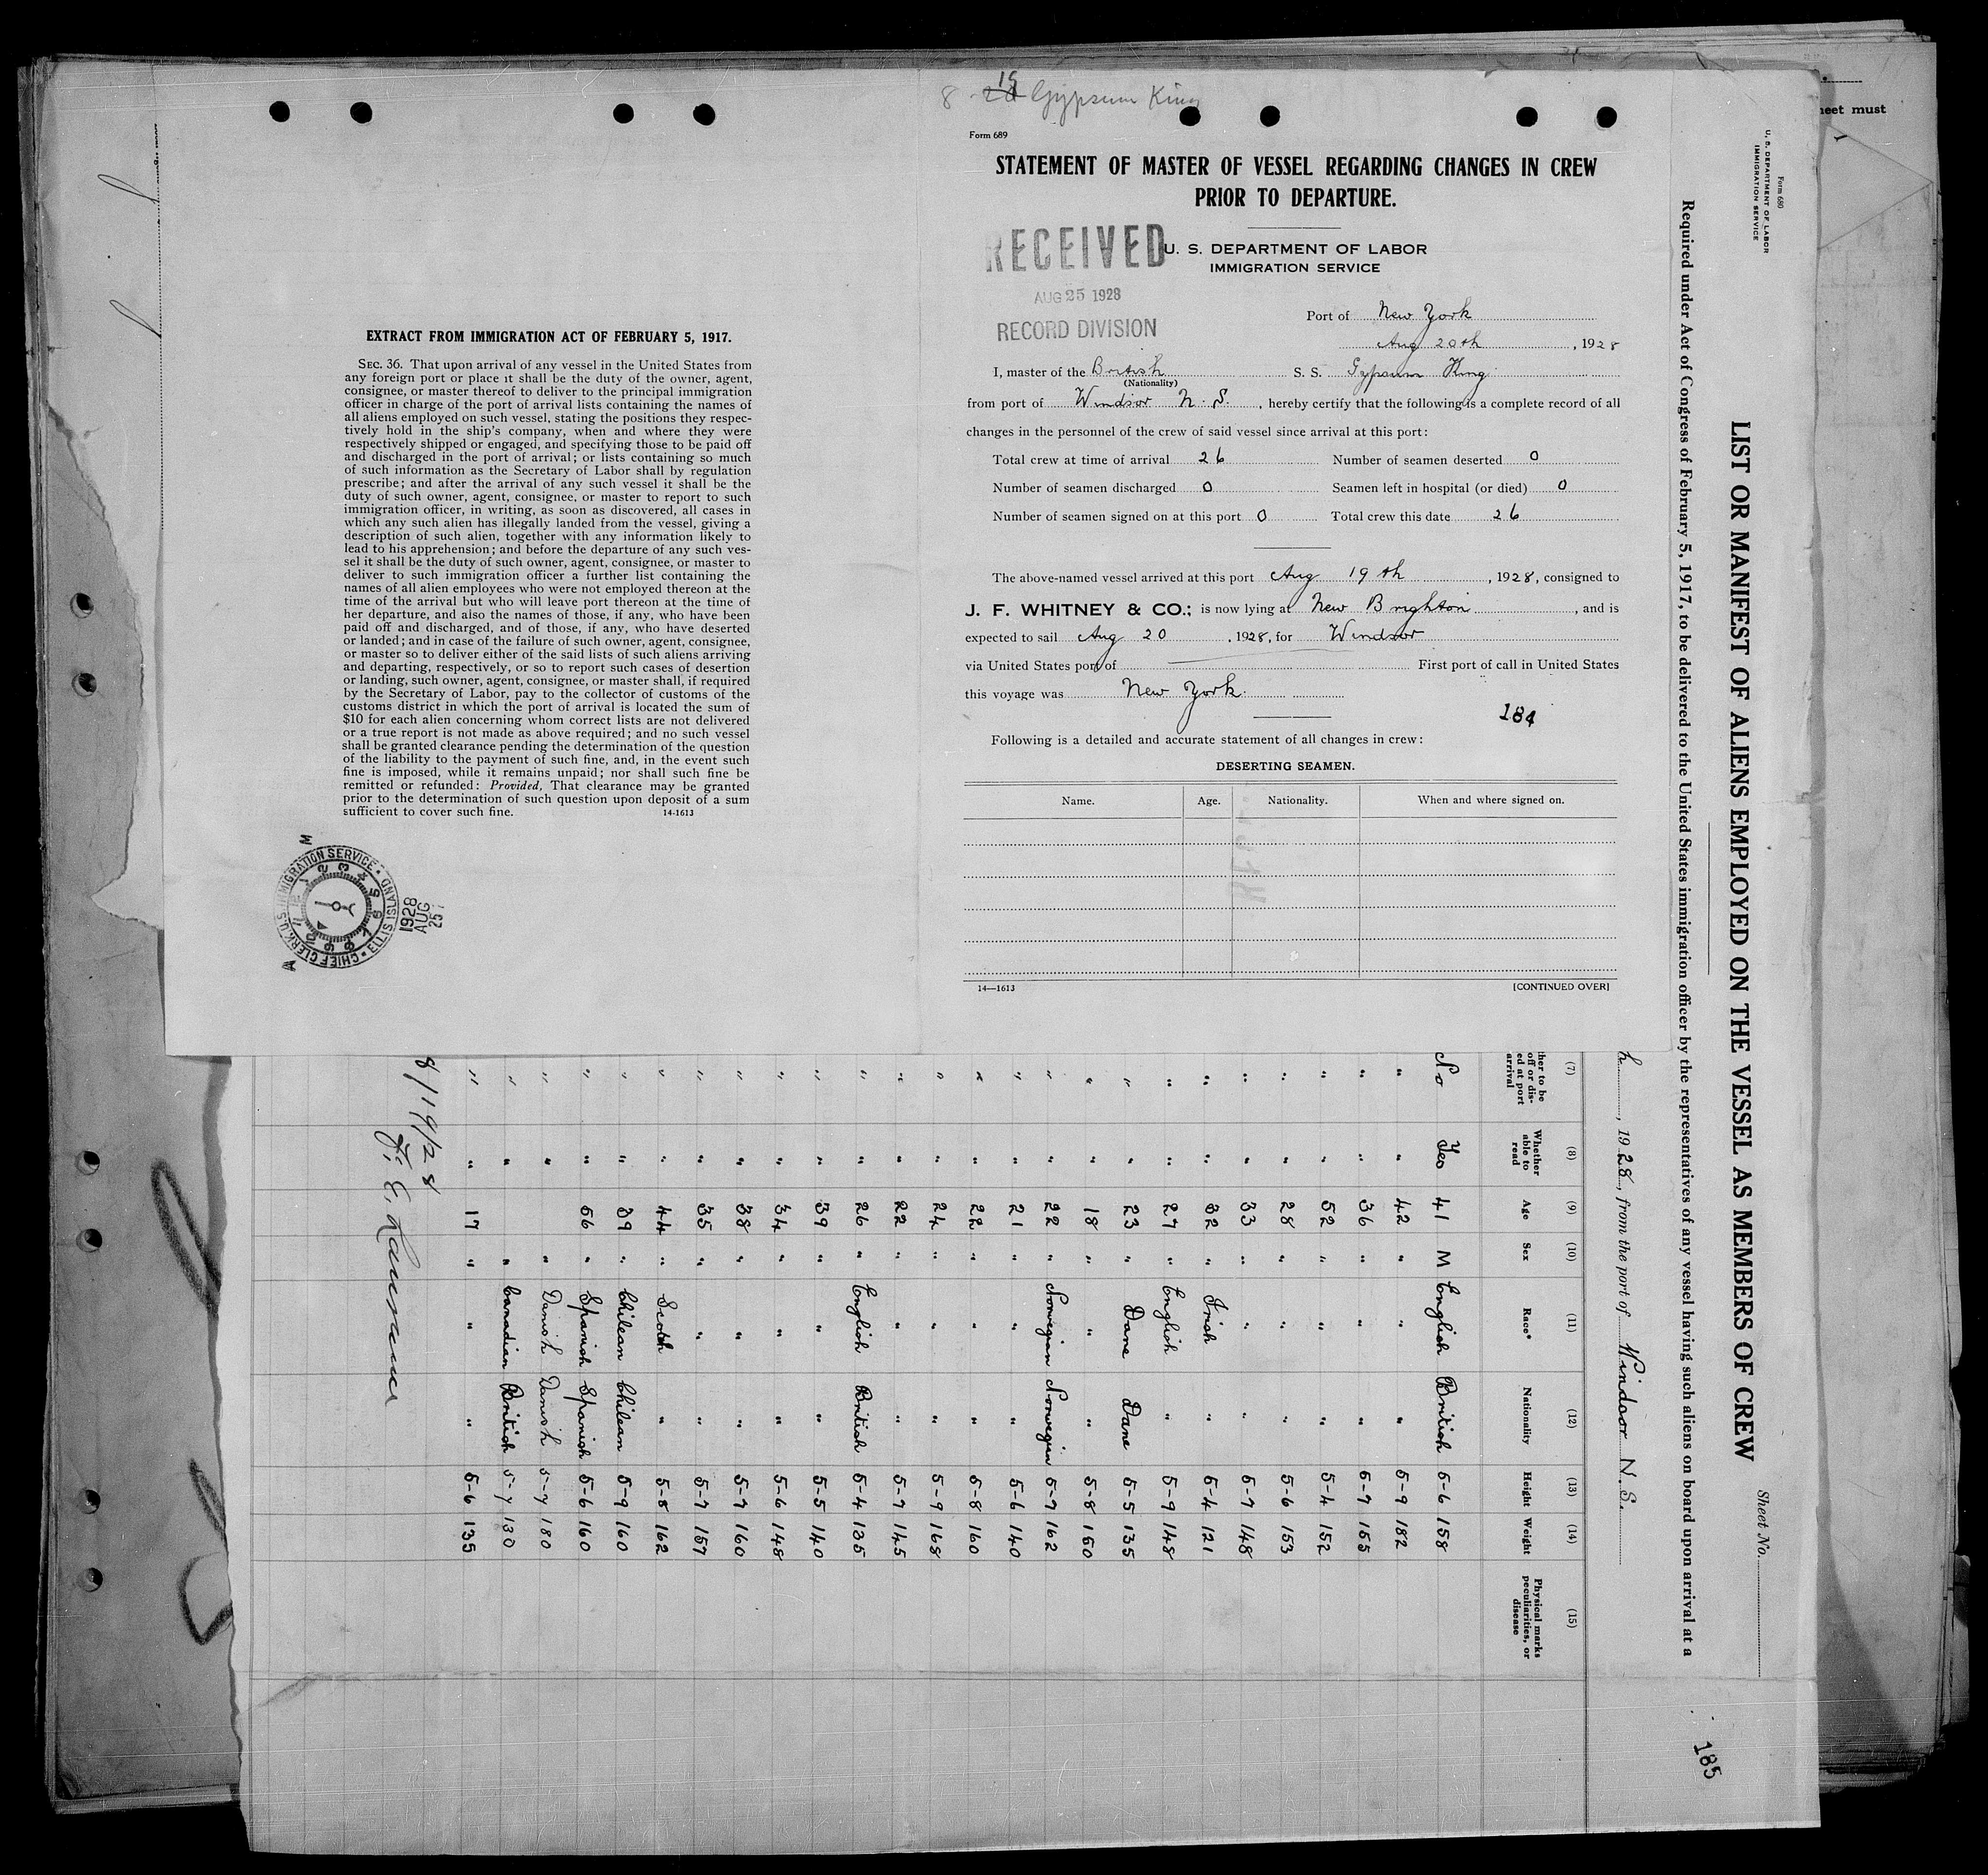 8 - 20 19 Gypsum King
Form 689
STATEMENT OF MASTER OF VESSEL REGARDING CHANGES IN CREW
PRIOR TO DEPARTURE.
RECEIVED
AUG 25 1928
RECORD DIVISION
U. S. DEPARTMENT OF LABOR
IMMIGRATION SERVICE
Port of New York
Aug 20th, 1928
I, master of the British S. S. Gypsum King
(Nationality)
from port of Windsor N. S., hereby certify that the following is a complete record of all
changes in the personnel of the crew of said vessel since arrival at this port:
Total crew at time of arrival 26 Number of seamen deserted 0
Number of seamen discharged 0 Seamen left in hospital (or died) 0
Number of seamen signed on at this port 0 Total crew this date 26
The above-named vessel arrived at this port Aug 19th, 1928, consigned to
J. F. WHITNEY & CO.; is now lying at New Brighton, and is
expected to sail Aug 20, 1928, for Windsor
via United States port of First port of call in United States
this voyage was New York
184
Following is a detailed and accurate statement of all changes in crew:
DESERTING SEAMEN.
Name. Age. Nationality. When and where signed on.
14—1613 [CONTINUED OVER]
EXTRACT FROM IMMIGRATION ACT OF FEBRUARY 5, 1917.
SEC. 36. That upon arrival of any vessel in the United States from
any foreign port or place it shall be the duty of the owner, agent,
consignee, or master thereof to deliver to the principal immigration
officer in charge of the port of arrival lists containing the names of
all aliens employed on such vessel, stating the positions they respec-
tively hold in the ship's company, when and where they were
respectively shipped or engaged, and specifying those to be paid off
and discharged in the port of arrival; or lists containing so much
of such information as the Secretary of Labor shall by regulation
prescribe; and after the arrival of any such vessel it shall be the
duty of such owner, agent, consignee, or master to report to such
immigration officer, in writing, as soon as discovered, all cases in
which any such alien has illegally landed from the vessel, giving a
description of such alien, together with any information likely to
lead to his apprehension; and before the departure of any such ves-
sel it shall be the duty of such owner, agent, consignee, or master to
deliver to such immigration officer a further list containing the
names of all alien employees who were not employed thereon at the
time of the arrival but who will leave port thereon at the time of
her departure, and also the names of those, if any, who have been
paid off and discharged, and of those, if any, who have deserted
or landed; and in case of the failure of such owner, agent, consignee,
or master so to deliver either of the said lists of such aliens arriving
and departing, respectively, or so to report such cases of desertion
or landing, such owner, agent, consignee, or master shall, if required
by the Secretary of Labor, pay to the collector of customs of the
customs district in which the port of arrival is located the sum of
$10 for each alien concerning whom correct lists are not delivered
or a true report is not made as above required; and no such vessel
shall be granted clearance pending the determination of the question
of the liability to the payment of such fine, and, in the event such
fine is imposed, while it remains unpaid; nor shall such fine be
remitted or refunded: Provided, That clearance may be granted
prior to the determination of such question upon deposit of a sum
sufficient to cover such fine. 14-1613
CHIEF CLERK U.S. IMMIGRATION SERVICE • ELLIS ISLAND •
1928
AUG
25
Form 680
U. S. DEPARTMENT OF LABOR
IMMIGRATION SERVICE
LIST OR MANIFEST OF ALIENS EMPLOYED ON THE VESSEL AS MEMBERS OF CREW
Sheet No.
Required under Act of Congress of February 5, 1917, to be delivered to the United States immigration officer by the representatives of any vessel having such aliens on board upon arrival at a
h, 1928, from the port of Windsor N.S.
185
(7) (8) (9) (10) (11) (12) (13) (14) (15)
ther to be off or dis- ed at port arrival Whether able to read Age Sex Race* Nationality Height Weight Physical marks, peculiarities, or disease
No Yes 41 M English British 5-6 158
" " 42 " " " 5-9 182
" " 36 " " " 5-7 155
" " 52 " " " 5-4 152
" " 28 " " " 5-6 153
" " 33 " " " 5-7 148
" " 32 " Irish " 5-4 121
" " 27 " English " 5-9 148
" " 23 " Dane Dane 5-5 135
" " 18 " " " 5-8 150
" " 22 " Norwegian Norwegin 5-7 162
" " 21 " " " 5-6 140
" " 22 " " " 5-8 160
" " 24 " " " 5-9 168
" " 22 " " " 5-7 145
" " 26 " English British 5-4 135
" " 39 " " " 5-5 140
" " 34 " " " 5-6 148
" " 38 " " " 5-7 160
" " 35 " " " 5-7 157
" " 44 " Scotch " 5-8 162
" " 39 " Chilean Chilean 5-9 160
" " 56 " Spanish Spanish 5-6 160
" " " Danish Danish 5-7 180
" " " Canadian British 5-7 130
" " 17 " " " 5-6 135
8/19/28
neet must